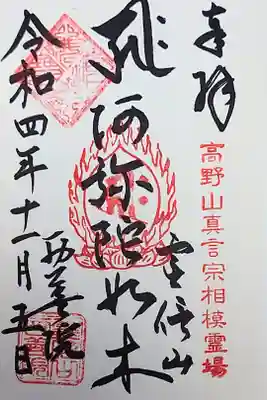 奉拝
高野山真言宗相模霊場
阿弥陀如来
宝信山
西善院
令和四年十一月五日